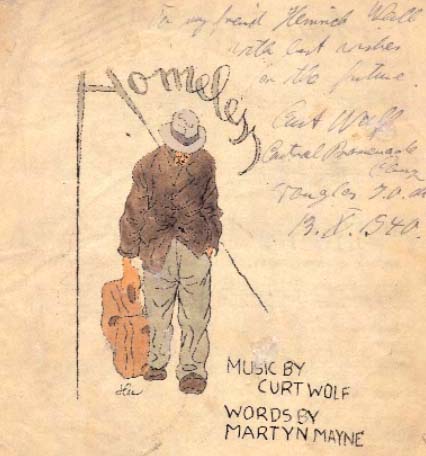 To my friend Heinrich
with best wishes
for the future
Curt Wolf
Central Promenade
Camp
Douglas I.O.M.
13.X.1940.
Homeless
MUSIC BY
CURT WOLF
WORDS BY
MARTYN MAYNE